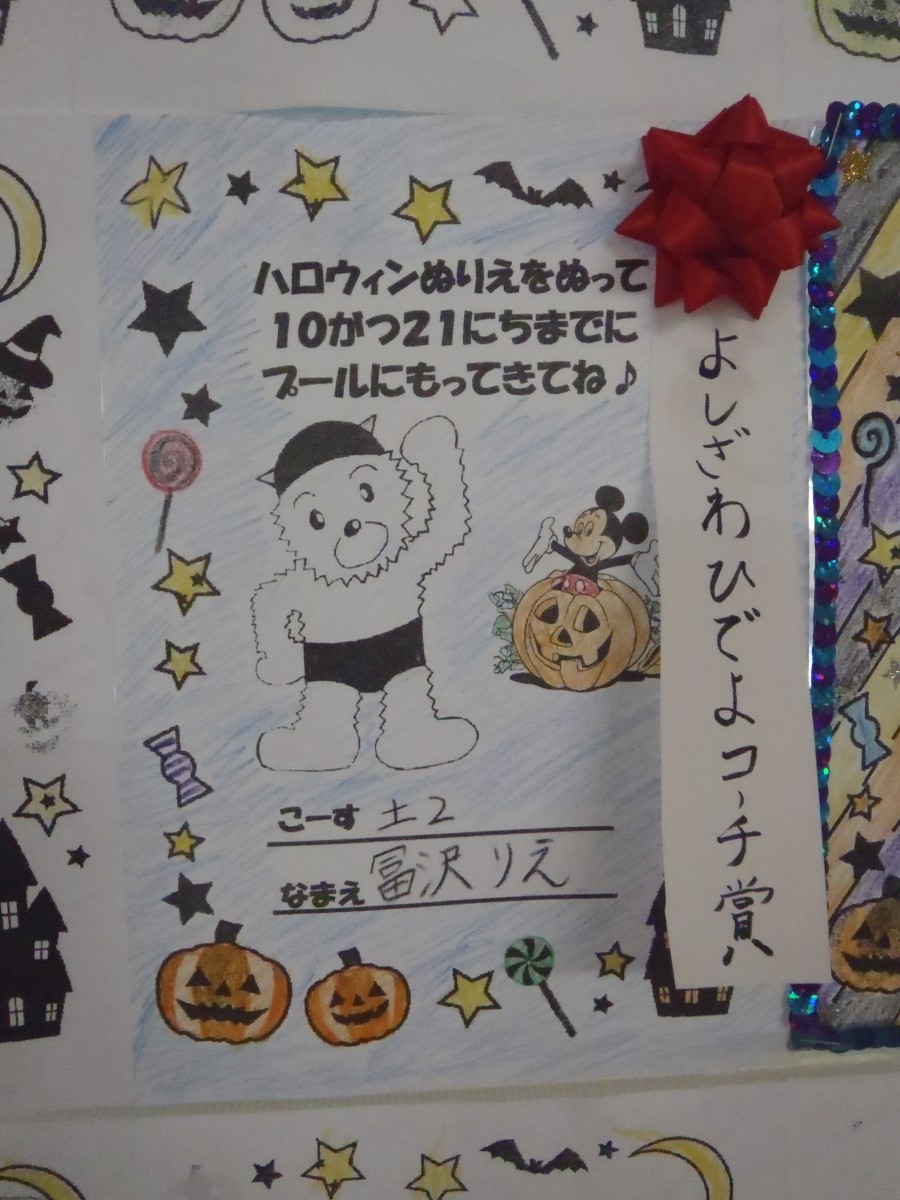 ハロウィンぬりえをぬって
10がつ21にちまでに
プールにもってきてね♪
こーす 土2
なまえ 冨沢りえ
よしざわひでよコーチ賞